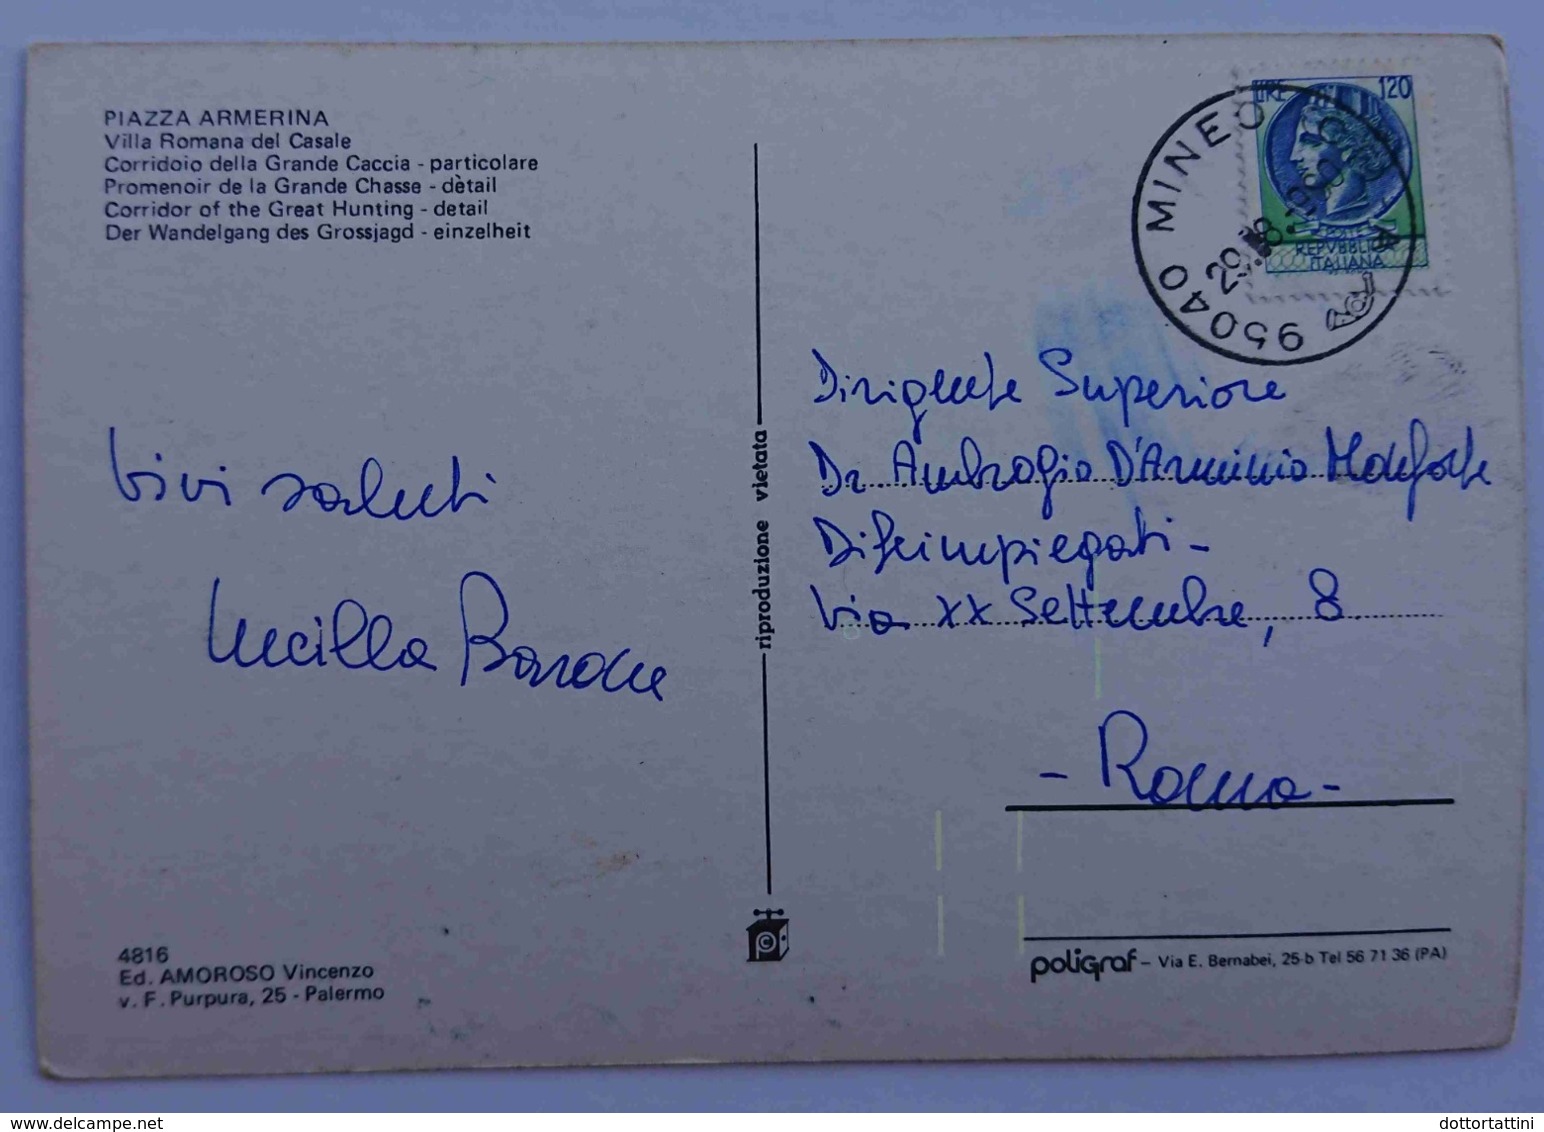 PIAZZA ARMERINA
Villa Romana del Casale
Corridoio della Grande Caccia - particolare
Promenoir de la Grande Chasse - dètail
Corridor of the Great Hunting - detail
Der Wandelgang des Grossjagd - einzelheit
Vivi saluti
Lucilla Barone
4816
Ed. AMOROSO Vincenzo
v. F. Purpura, 25 - Palermo
riproduzione vietata
LIRE 120
REPVBBLICA
ITALIANA
95040 MINEO
29.8.
Dirigente Superiore
Dr Ambrogio D'Arminio Monforte
Difeimpiegati -
Via XX Settembre, 8
- Roma -
poligraf - Via E. Bernabei, 25-b Tel 56 71 36 (PA)
dottortattini